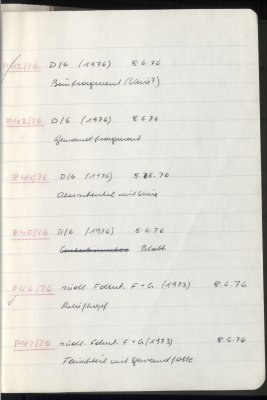 P42/76 D/6 (1976) 8.6.76
Beinfragment (Knie?)
P43/76 D/6 (1976) 8.6.76
Gewandfragment
P44/76 D/6 (1976) 8.6.76
Oberschenkel mit Knie
P45/76 D/6 (1976) 8.6.76
Blatt
P46/76 südl. F + G (1973) 8.6.76
Reliefkopf
P47/76 südl. F + G (1973) 8.6.76
mit Gewandfalte